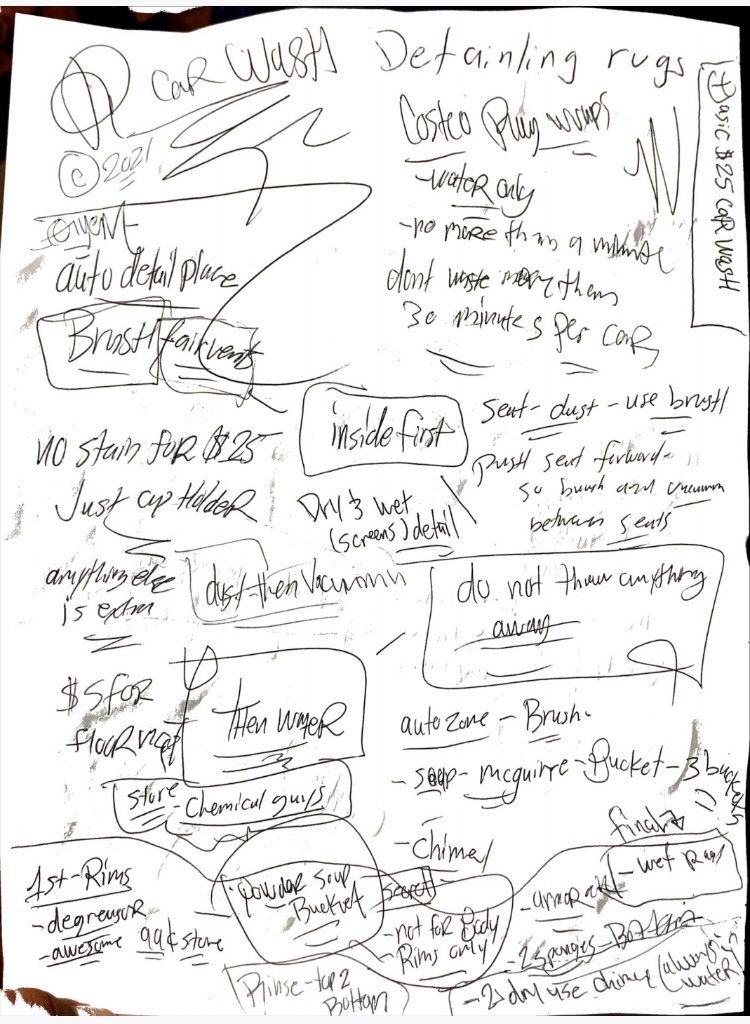 Car Wash
© 2021
auto detail place
Brush
air vents
no stain for $25
Just cup Holder
anything else
is extra
$5 for
floor mat
Detainling rugs
Costco
wraps
- water only
- no more than a minute
dont waste
them
30 minutes per car
Basic $25 Car Wash
inside first
Dry & wet
(screens) detail
seat - dust - use brush
push seat forward -
so brush and vacuum
between seats
dust - then Vacuumn
do not throw anything
away
then water
store - Chemical guys
autozone - Brush
- soap - mcguire - Bucket - 3 buckets
- chimey
secret
- not for Body
Rims only
powder soup
Bucket
1st - Rims
- degreaser
- awesome 99¢ store
Rinse - top 2
Bottom
final
- wet rag
- armor all
- 2 sponges -
- 2) dry use chimey (always in
water)